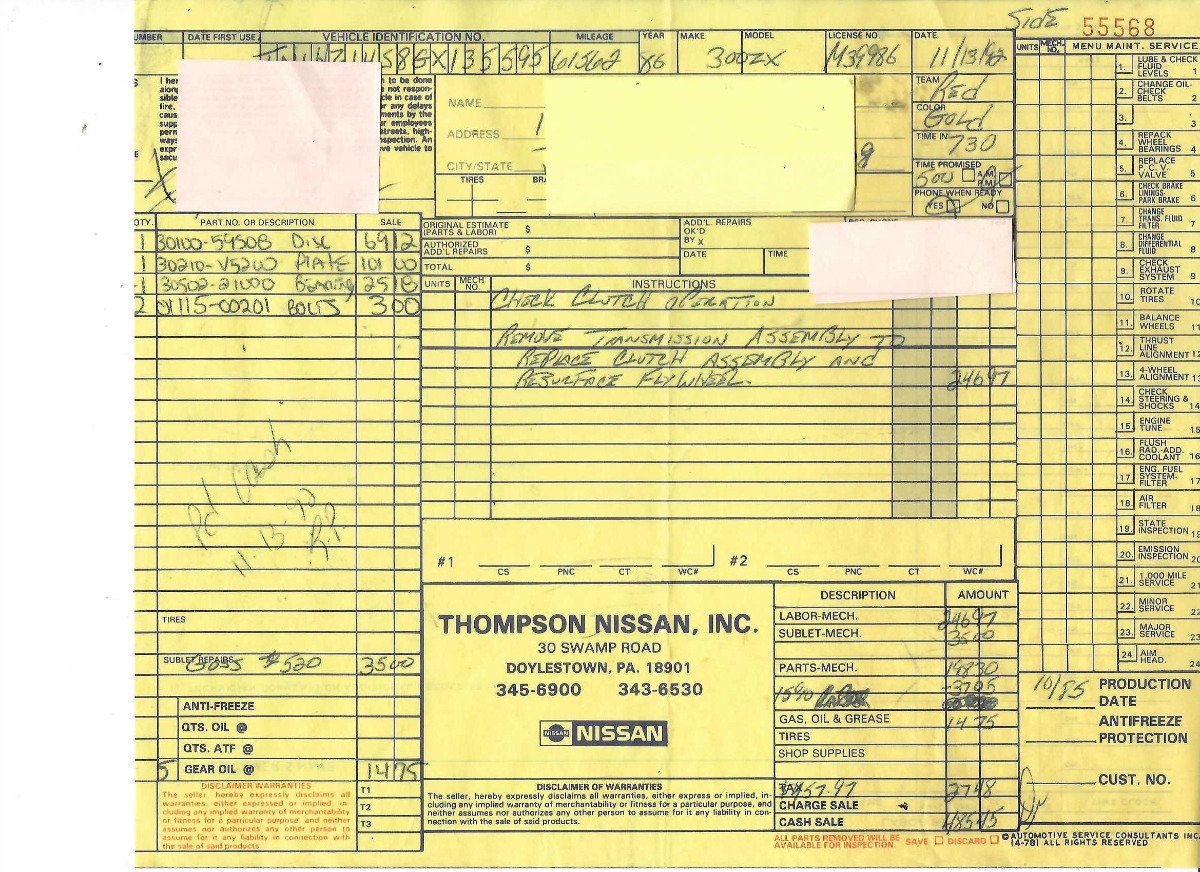 Side 55568
UMBER DATE FIRST USE VEHICLE IDENTIFICATION NO. MILEAGE YEAR MAKE MODEL LICENSE NO. DATE
61562 86 300ZX M39986 11/13/92
I her
along
sible
fire,
caus
supp
perm
ways
expr
secu
to be done
not respon-
cle in case of
or any delays
ments by the
ur employees
streets, high-
nspection. An
ve vehicle to
NAME
ADDRESS
CITY/STATE
TIRES BRA
TEAM
Red
COLOR
Gold
TIME IN 730
TIME PROMISED
500 A.M. P.M.
PHONE WHEN READY
YES NO
QTY. PART NO. OR DESCRIPTION SALE
1 30100-59S0B Disc 69 12
1 30210-V5200 PLATE 101 00
1 30502-21000 Bearing 25 18
2 01115-00201 BOLTS 3 00
Pd Cash
11-13-92
R.P.
TIRES
SUBLET REPAIRS Goss #520 35 00
ANTI-FREEZE
QTS. OIL @
QTS. ATF @
5 GEAR OIL @ 14 75
DISCLAIMER WARRANTIES
The seller, hereby expressly disclaims all
warranties, either expressed or implied, in-
cluding any implied warranty of merchantability
or fitness for a particular purpose, and neither
assumes nor authorizes any other person to
assume for it any liability in connection with
the sale of said products
T1
T2
T3
ORIGINAL ESTIMATE (PARTS & LABOR) $
AUTHORIZED ADD'L REPAIRS $
TOTAL $
ADD'L. REPAIRS
OK'D
BY X
DATE TIME
UNITS MECH NO. INSTRUCTIONS
CHECK CLUTCH OPERATION
REMOVE TRANSMISSION ASSEMBLY TO
REPLACE CLUTCH ASSEMBLY AND
RESURFACE FLYWHEEL. 246 97
#1 CS PNC CT WC# #2 CS PNC CT WC#
THOMPSON NISSAN, INC.
30 SWAMP ROAD
DOYLESTOWN, PA. 18901
345-6900 343-6530
NISSAN NISSAN
DISCLAIMER OF WARRANTIES
The seller, hereby expressly disclaims all warranties, either express or implied, in-
cluding any implied warranty of merchantability or fitness for a particular purpose, and
neither assumes nor authorizes any other person to assume for it any liability in con-
nection with the sale of said products.
DESCRIPTION AMOUNT
LABOR-MECH. 246 97
SUBLET-MECH. 35 00
PARTS-MECH. 198 30
-37 05
GAS, OIL & GREASE 14 75
TIRES
SHOP SUPPLIES
TAX $457.97 27 48
CHARGE SALE
CASH SALE 485 45
ALL PARTS REMOVED WILL BE
AVAILABLE FOR INSPECTION. SAVE DISCARD
UNITS MECH. NO. MENU MAINT. SERVICE
1. LUBE & CHECK FLUID LEVELS 1
2. CHANGE OIL-CHECK BELTS 2
3. 3
4. REPACK WHEEL BEARINGS 4
5. REPLACE P.C.V. VALVE 5
6. CHECK BRAKE LININGS-PARK BRAKE 6
7. CHANGE TRANS. FLUID FILTER 7
8. CHANGE DIFFERENTIAL FLUID 8
9. CHECK EXHAUST SYSTEM 9
10. ROTATE TIRES 10
11. BALANCE WHEELS 11
12. THRUST LINE ALIGNMENT 12
13. 4-WHEEL ALIGNMENT 13
14. CHECK STEERING & SHOCKS 14
15. ENGINE TUNE 15
16. FLUSH RAD.-ADD. COOLANT 16
17. ENG. FUEL SYSTEM-FILTER 17
18. AIR FILTER 18
19. STATE INSPECTION 19
20. EMISSION INSPECTION 20
21. 1,000 MILE SERVICE 21
22. MINOR SERVICE 22
23. MAJOR SERVICE 23
24 AIM HEAD. 24
10/85 PRODUCTION DATE
ANTIFREEZE PROTECTION
CUST. NO.
© AUTOMOTIVE SERVICE CONSULTANTS INC.
(4-78) ALL RIGHTS RESERVED